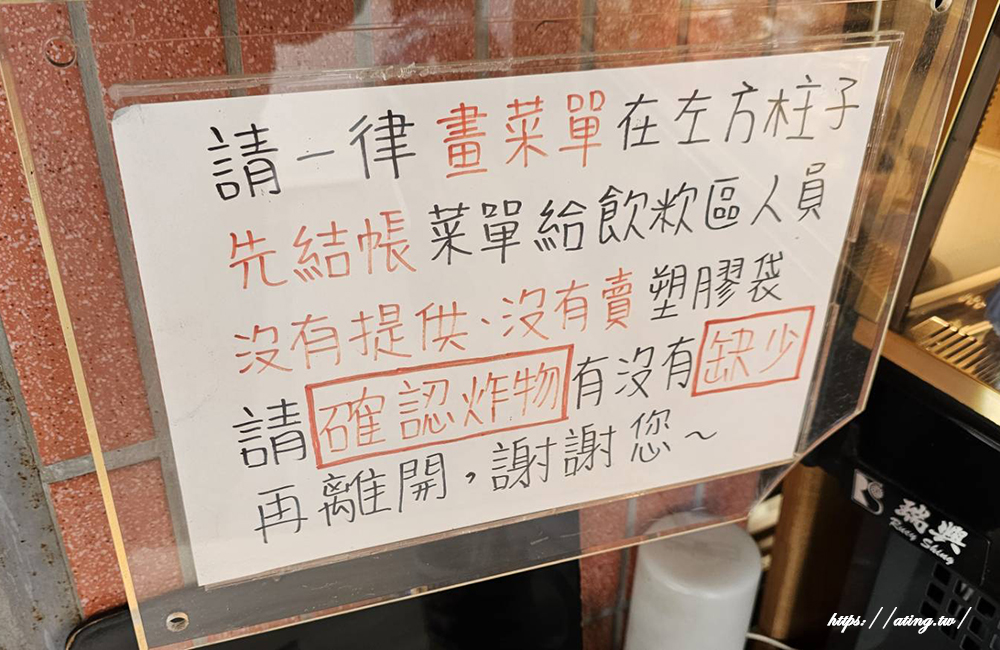 請一律畫菜單在左方柱子
先結帳菜單給飲炊區人員
沒有提供、沒有賣塑膠袋
請確認炸物有沒有缺少
再離開,謝謝您~
瑞興
Rucy Shing
https://ating.tw/